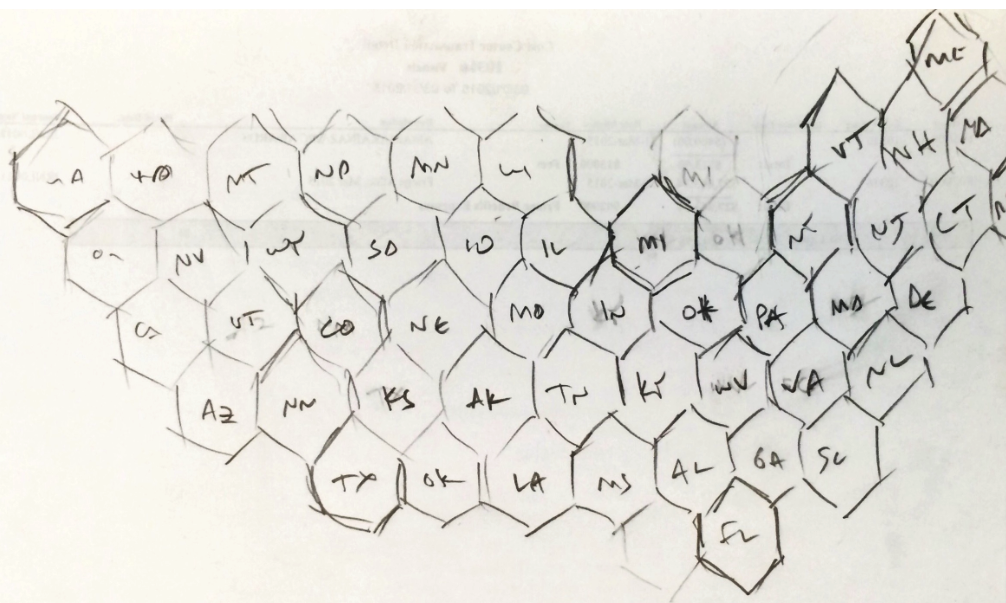 ME
VT NH MA
WA MT ND MN WI MI
NV WY SD IO IL MI OH NY NJ CT
CA UT CO NE MO IN OH PA MD DE
AZ NN KS AK TN KY WV VA NC
TX OK LA MS AL GA SC
FL